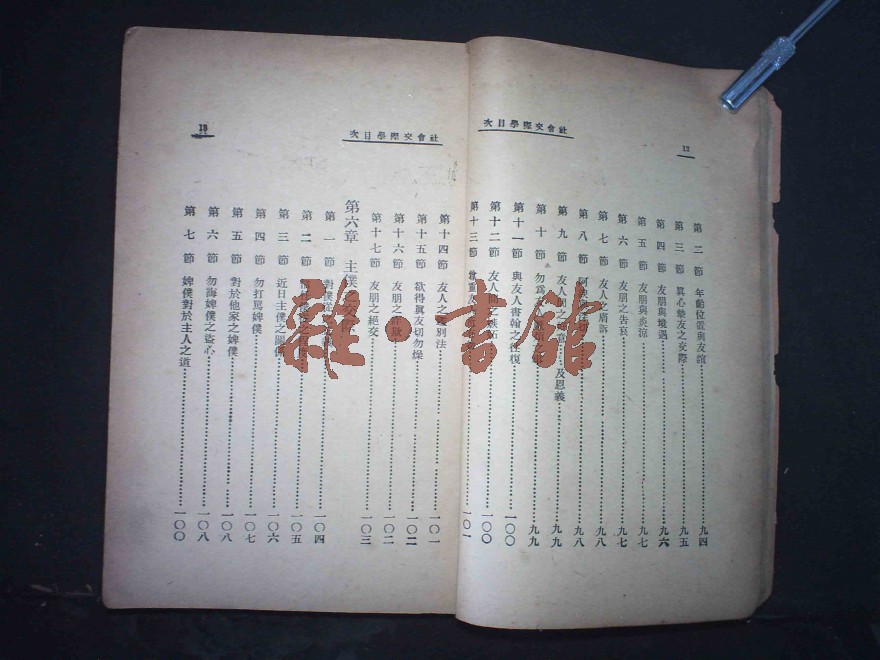 社會交際學目次
12
第二節 年齡位置與友誼 九四
第三節 眞心摯友之交際 九五
第四節 友朋與境遇 九六
第五節 友朋與炎涼 九七
第六節 友朋之告哀 九七
第七節 友人之膚訴 九八
第八節 九八
第九節 友人 及恩義 九九
第十節 勿爲 九九
第十一節 與友人書翰之往復 一〇〇
第十二節 友人間之 一〇〇
第十三節 一〇一
社會交際學目次
13
第十四節 友人之 別法 一〇一
第十五節 欲得眞友切勿燥 一〇二
第十六節 友朋之 一〇二
第十七節 友朋之絕交 一〇三
第六章 主僕之交際
第一節 對僕 一〇四
第二節 一〇五
第三節 近日主僕之關係 一〇六
第四節 勿打罵婢僕 一〇七
第五節 對於他家之婢僕 一〇八
第六節 勿誨婢僕之盜心 一〇八
第七節 婢僕對於主人之道 一〇〇
雜·書館